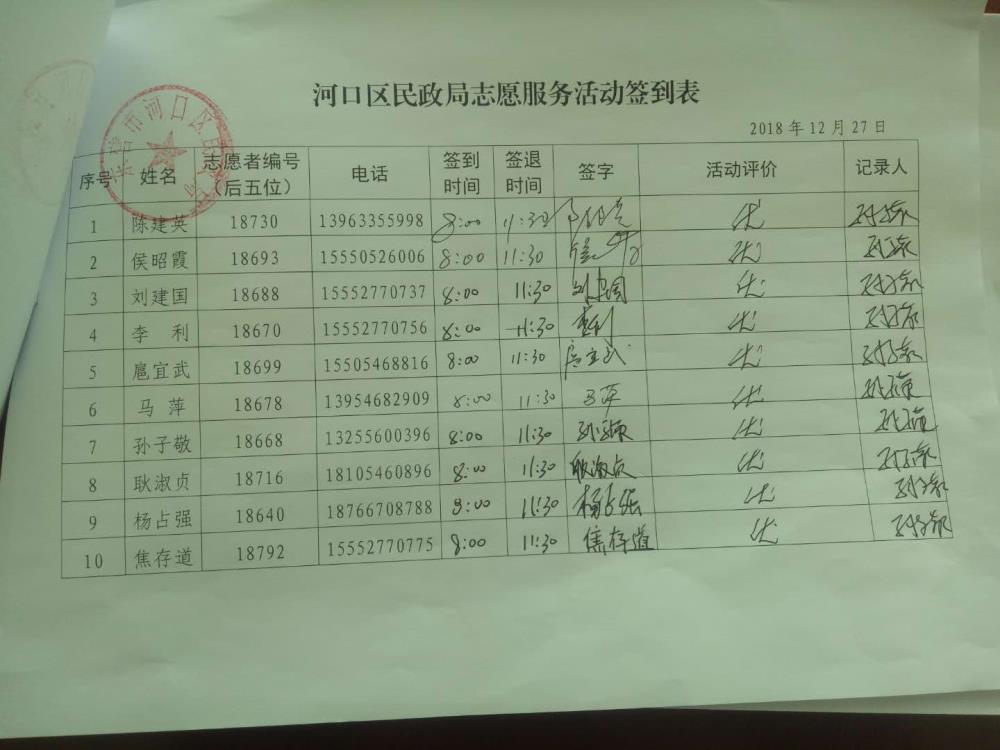 河口区民政局志愿服务活动签到表
2018 年 12 月 27 日
序号 姓名 志愿者编号（后五位） 电话 签到时间 签退时间 签字 活动评价 记录人
1 陈建英 18730 13963355998 8:00 11:30 优
2 侯昭霞 18693 15550526006 8:00 11:30 优
3 刘建国 18688 15552770737 8:00 11:30 刘建国 优
4 李 利 18670 15552770756 8:00 11:30 李利 优
5 扈宜武 18699 15505468816 8:00 11:30 扈宜武 优
6 马 萍 18678 13954682909 8:00 11:30 马萍 优
7 孙子敬 18668 13255600396 8:00 11:30 优
8 耿淑贞 18716 18105460896 8:00 11:30 耿淑贞 优
9 杨占强 18640 18766708788 8:00 11:30 杨占强 优
10 焦存道 18792 15552770775 8:00 11:30 焦存道 优